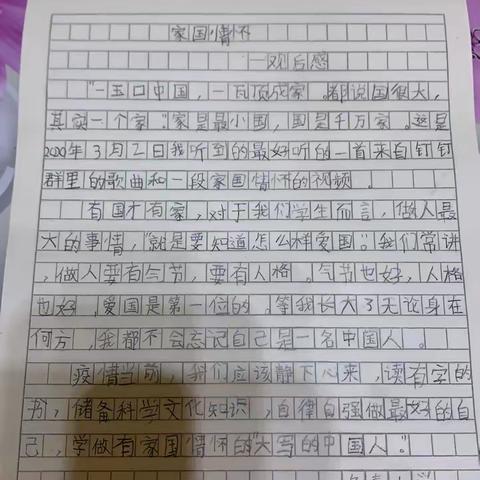 家国情怀
一观后感
"一玉口中国，一瓦顶成家。都说国很大，
其实一个家。"家是最小国，国是千万家。这是
2020年3月2日我听到的最好听的一首来自钉钉
群里的歌曲和一段家国情怀的视频。
有国才有家，对于我们学生而言，做人最
大的事情，"就是要知道怎么样爱国。"我们常讲
，做人要有气节，要有人格。气节也好，人格
也好，爱国是第一位的，等我长大了无论身在
何方，我都不会忘记自己是一名中国人。
疫情当前，我们应该静下心来，读有字的
书，储备科学文化知识，自律自强做最好的自
己，学做有家国情怀的"大写的中国人。"